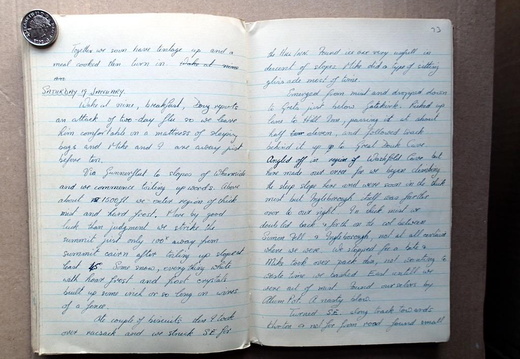 Together we soon have tentage up and a
meal cooked then turn in. Wake at nine
on
SATURDAY 19 JANUARY.
Wake at nine, breakfast, Doug reports
an attack of two-day flu so we leave
him comfortable on a mattress of sleeping
bags and Mike and I are away just
before ten.
Via Simmerflat to slopes of Whernside
and we commence toiling upwards. Above
about 1500ft we enter region of thick
mist and hard frost. More by good
luck than judgment we strike the
summit just only 100' away from
summit cairn after toiling up slopes at
least 45. Some snow, everything white
with hoar frost and frost crystals
build up some inch or so long on wires
of a fence.
Ate couple of biscuits
over rucsack and we struck S.E. for
73
the Hill Inn. Found we are very unfit in
descent of slopes. Mike did a type of sitting
glissade most of time.
Emerged from mist and dropped down
to Greta just below Gatekirk. Picked up
lane to Hill Inn, passing it at about
half eleven, and followed track
behind it up to Great Douk Cave
Angled off in region of Washfold Cave but
here made not over for we began climbing
the steep slope here and were soon in the thick
mist but Ingleborough itself was further
over to our right. In thick mist we
doubled back & forth on to col between
Simon Fell & Ingleborough, not at all certain
where we were. We stopped for a bite &
Mike took over sack then, not wanting to
waste time we bashed East until we
were out of mist. Found ourselves by
Alum Pot. A nasty blow.
Turned S.E. along track towards
is not far from road found small